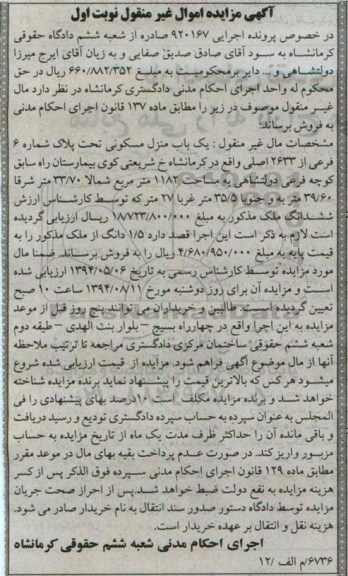 آگهی مزایده اموال غیر منقول نوبت اول
در خصوص پرونده اجرایی ۹۲۰۱۶۷ صادره از شعبه ششم دادگاه حقوقی
کرمانشاه به سود آقای صادق صدیق صفایی و به زیان آقای ایرج میرزا
دولتشاهی و .. دایر بر محکومیت به مبلغ ۶۶۰/۸۸۲/۳۵۲ ریال در حق
محکوم له واحد اجرای احکام مدنی دادگستری کرمانشاه در نظر دارد مال
غیر منقول موصوف در زیر را مطابق ماده ۱۳۷ قانون اجرای احکام مدنی
به فروش برساند:
مشخصات مال غیر منقول : یک باب منزل مسکونی تحت پلاک شماره ۶
فرعی از ۲۶۳۳ اصلی واقع در کرمانشاه خ شریعتی کوی بیمارستان راه سابق
کوچه فرعی دولتشاهی به مساحت ۱۱۸۲ متر مربع شمالا ۳۳/۷۰ متر شرقا
۳۹/۶۰ متر به و جنوبا ۳۵/۵ متر غربا ۲۷ متر که توسط کارشناس ارزش
ششدانگ ملک مذکور به مبلغ ۱۸۷۲۳/۸۰۰/۰۰۰ ریال ارزیابی گردیده
است لازم به ذکر است این اجرا قصد دارد ۱/۵ دانگ از ملک مذکور را به
قیمت پایه به مبلغ ۴/۶۸۰/۹۵۰/۰۰۰ ریال را به فروش برساند. ضمنا مال
مورد مزایده توسط کارشناس رسمی به تاریخ ۱۳۹۴/۰۵/۰۶ ارزیابی شده
است و مزایده آن برای روز دوشنبه مورخ ۱۳۹۴/۰۸/۱۱ ساعت ۱۰ صبح
تعیین گردیده است. طالبین و خریداران می توانند پنج روز قبل از موعد
مزایده به این اجرا واقع در چهارراه بسیج – بلوار بنت الهدی – طبقه دوم
شعبه ششم حقوقی ساختمان مرکزی دادگستری مراجعه تا ترتیب ملاحظه
آنها از مال موضوع آگهی فراهم شود. مزایده از قیمت ارزیابی شده شروع
میشود هر کس که بالاترین قیمت را پیشنهاد نماید برنده مزایده شناخته
خواهد شد و برنده مزایده مکلف است ۱۰درصد بهای پیشنهادی را فی
المجلس به عنوان سپرده به حساب سپرده دادگستری تودیع و رسید دریافت
و باقی مانده آن را حداکثر ظرف مدت یک ماه از تاریخ مزایده به حساب
مزبور واریز کند. در صورت عدم پرداخت بقیه بهای مال در موعد مقرر
مطابق ماده ۱۲۹ قانون اجرای احکام مدنی سپرده فوق الذکر پس از کسر
هزینه مزایده به نفع دولت ضبط خواهد شد.پس از احراز صحت جریان
مزایده توسط دادگاه دستور صدور سند انتقال به نام خریدار صادر می شود.
هزینه نقل و انتقال بر عهده خریدار است.
اجرای احکام مدنی شعبه ششم حقوقی کرمانشاه
۶۷۳۶/م الف /۱۲